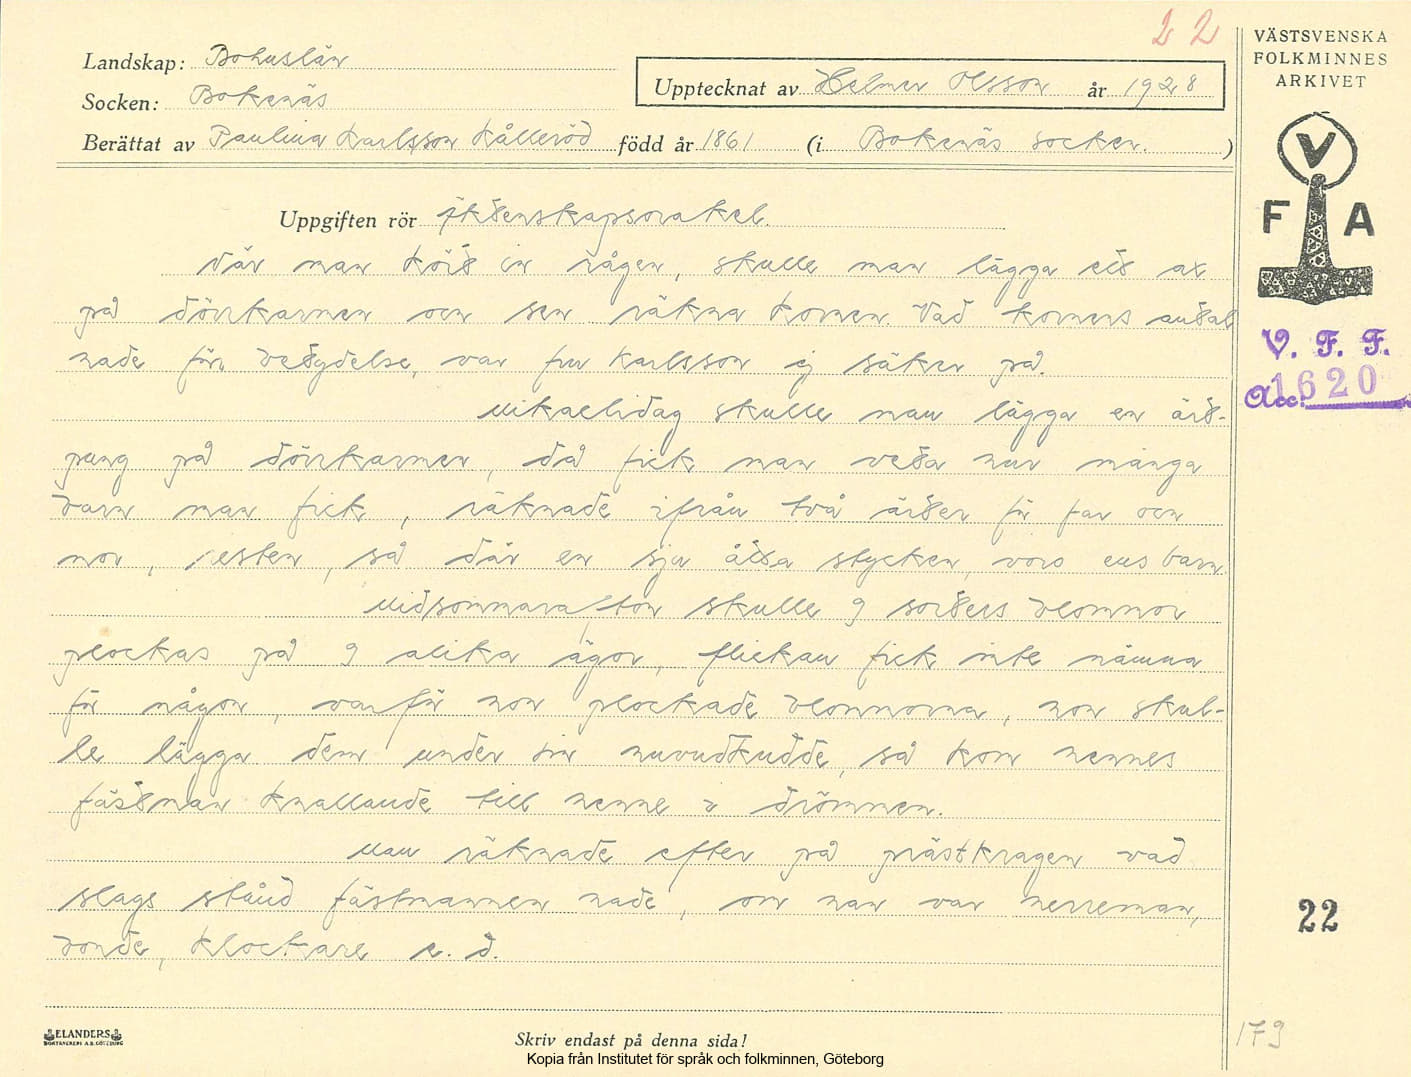 22
VÄSTSVENSKA
FOLKMINNES
ARKIVET
Landskap: Bohuslän
Upptecknat av Helmer Olsson år 1928
Socken: Bokenäs
Berättat av Paulina Karlsson Kålleröd född år 1861 (i Bokenäs socken.)
V
F A
Uppgiften rör Äktenskapsorakel.
När man kört in rågen, skulle man lägga ett ax
på dörrkarmen och sen räkna kornen. Vad kornens antal
hade för betydelse, var fru Karlsson ej säker på.
V. F. F.
Acc. 1620
Mikaelidag skulle man lägga en ärt-
pung på dörrkarmen, då fick man veta hur många
barn man fick, räknade ifrån två ärter för far och
mor, resten, så där en sju åtta stycken, voro ens barn.
Midsommarafton skulle 9 sorters blommor
plockas på 9 olika ägor, flickan fick inte nämna
för någon, varför hon plockade blommorna, hon skul-
le lägga dem under sin huvudkudde, så kom hennes
fästman knallande till henne i drömmen.
Man räknade efter på prästkragen vad
slags stånd fästmannen hade, om han var herreman,
bonde, klockare e. d.
22
ELANDERS
BOKTRYCKERI A.B. GÖTEBORG
Skriv endast på denna sida!
179
Kopia från Institutet för språk och folkminnen, Göteborg